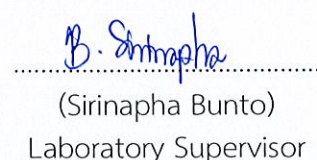 B. Sirinapha
(Sirinapha Bunto)
Laboratory Supervisor